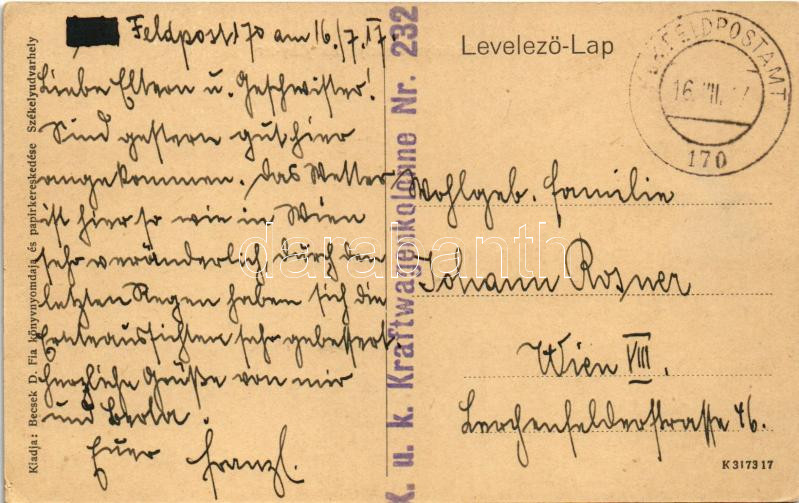 Feldpost 170 am 16./7. 17.
Liebe Eltern u. Geschwister!
Sind gestern gut hier
angekommen. Das Wetter
ist hier so wie in Wien
sehr veränderlich, durch den
letzten Regen haben sich die
Ernteaussichten sehr gebessert.
Herzliche Grüße von mir
und
Euer Franzl.
Kiadja: Becsek D. Fia könyvnyomdaja és papirkereskedése Székelyudvarhely
K. u. k. Kraftwagenkolonne Nr. 232
Levelezö-Lap
K.u.K. FELDPOSTAMT
16. VII. 17
170
Wohlgeb. Familie
Johann Rosner
Wien VIII.
Lerchenfelderstrasse 46.
K 3173 17
darabanth